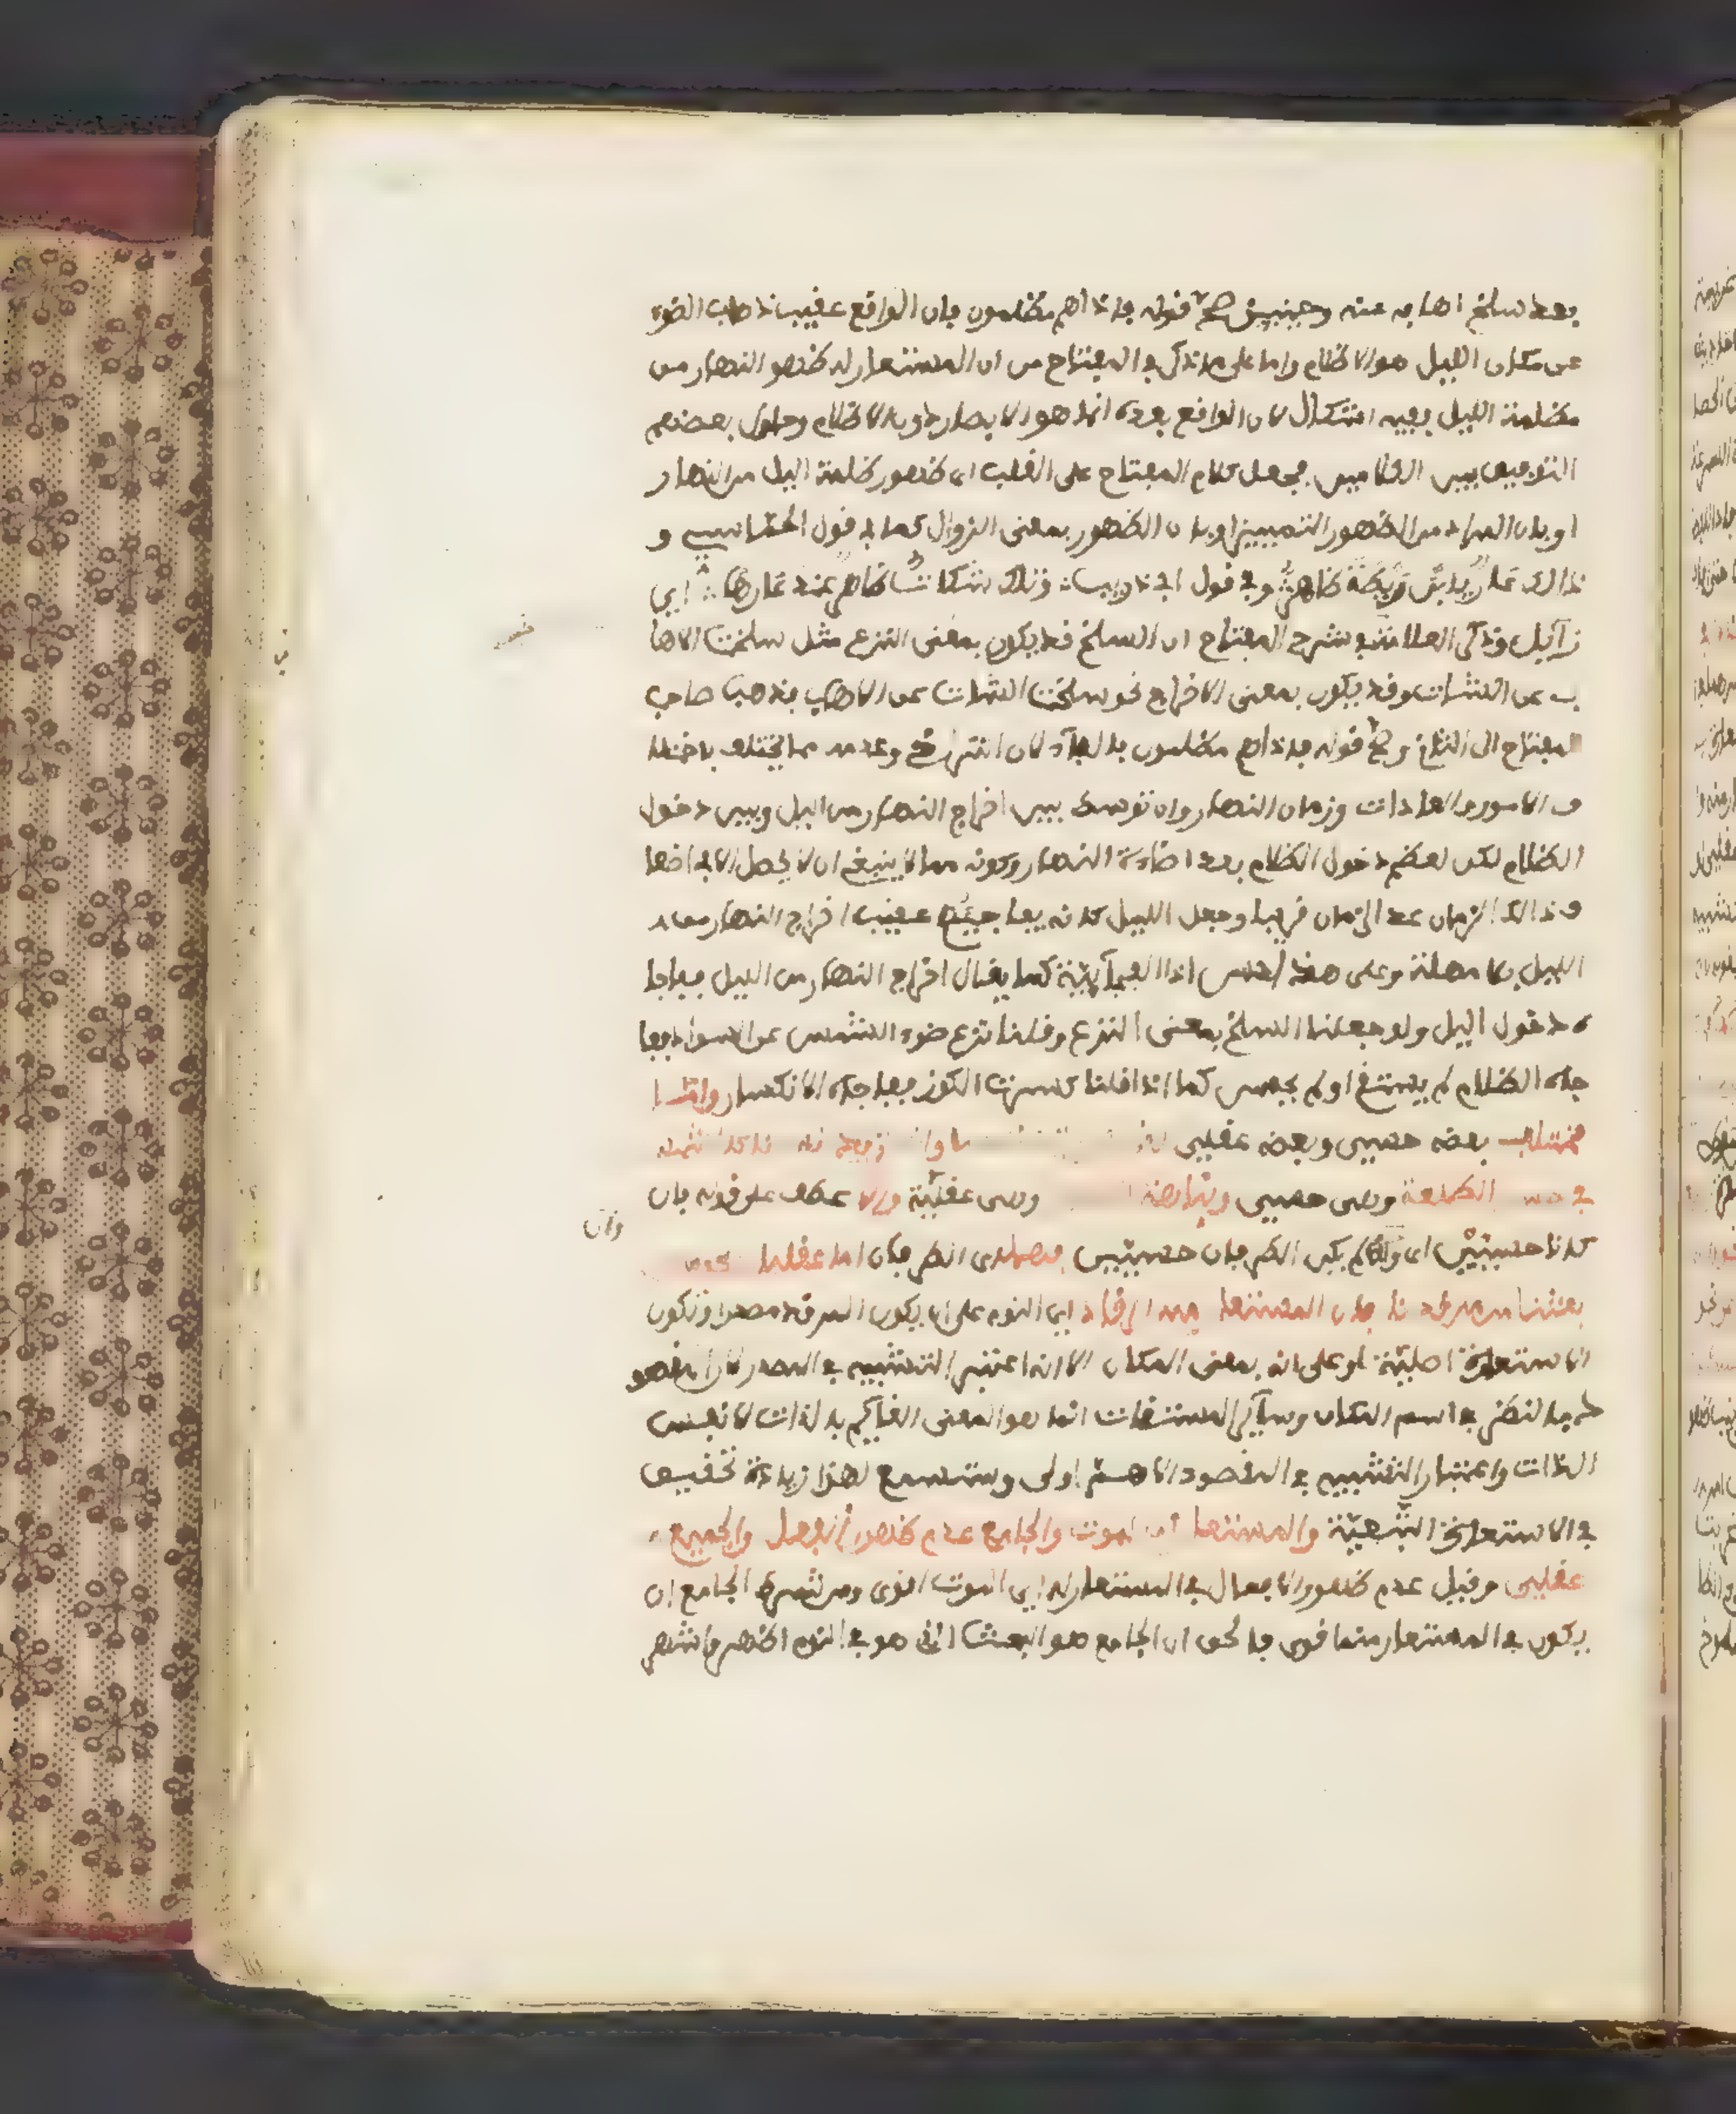 بعد سلخ اهابه عنه وحينئذ صح قوله فاذا هم مظلمون فان الواقع عقيب ذهاب الضوء
عن مكان الليل هو الاظلام واما على ما ذكر في المفتاح من ان المستعار له ظهور النهار من
ظلمة الليل ففيه اشكال لان الواقع بعده انما هو الابصار دون الاظلام وحاول بعضهم
التوفيق بين الكلامين بحمل كلام المفتاح على القلب اي ظهور ظلمة اليل من النهار
او بان المراد من الظهور التمييز او بان الظهور بمعنى الزوال كما في قول الحماسي و
ذالك عار يا ابن ريطة ظاهر وفي قول ابي ذويب وتلك شكاة ظاهر عنك عارها اي
زآيل وذكر العلامة في شرح المفتاح ان السلخ قد يكون بمعنى النزع مثل سلخت الاها
ب عن الشات وقد يكون بمعنى الاخراج نحو سلخت الشات عن الاهاب فذهب صاحب
المفتاح الى الثاني وصح قوله فاذا هم مظلمون بالفآء لان التراخي وعدمه مما يختلف باختلا
ف الامور والعادات وزمان النهار وان توسط بين اخراج النهار من اليل وبين دخول
الظلام لكن لعظم دخول الظلام بعد اضاءة النهار وكونه مما لا ينبغي ان لا يحصل الا في اضعا
ف ذالك الزمان عد الزمان قريبا وجعل الليل كانه يفاجيهم عقيب اخراج النهار من
الليل بلا مهلة وعلى هذا حسن اذا الفجآيية كما يقال اخراج النهار من الليل ففاجا
ه دخول اليل ولو جعلنا السلخ بمعنى النزع وقلنا نزع ضوء الشمس عن الهوا ففا
جاه الظلام لم يستقم او لم يحسن كما اذا قلنا كسرت الكوز ففاجاه الانكسار واما
مختلف بعضه حسي وبعضه عقلي
في الطلعة وهي حسي ونباهة وهي عقلية والا عطف على قوله فان
كانا حسيين اي وان لم يكن الطرفان حسيين فهما اي الطرفان اما عقليان نحو من
بعثنا من مرقدنا فان المستعار منه الرقاد اي النوم على ان يكون المرقد مصدرا وتكون
الاستعارة اصلية او على انه بمعنى المكان الا انه اعتبر التشبيه في المصدر لان المقصو
د بالنظر في اسم المكان وسآير المشتقات انما هو المعنى القآيم بالذات لا نفس
الذات واعتبار التشبيه في المقصود الاهم اولى وستسمع لهذا زيادة تحقيق
في الاستعارة التبعية والمستعار له الموت والجامع عدم ظهور الفعل والجميع
عقلي وقيل عدم ظهور الافعال في المستعار له اي الموت اقوى ومن شرط الجامع ان
يكون في المستعار منه اقوى فالحق ان الجامع هو البعث الذي هو في النوم اظهر واشهر